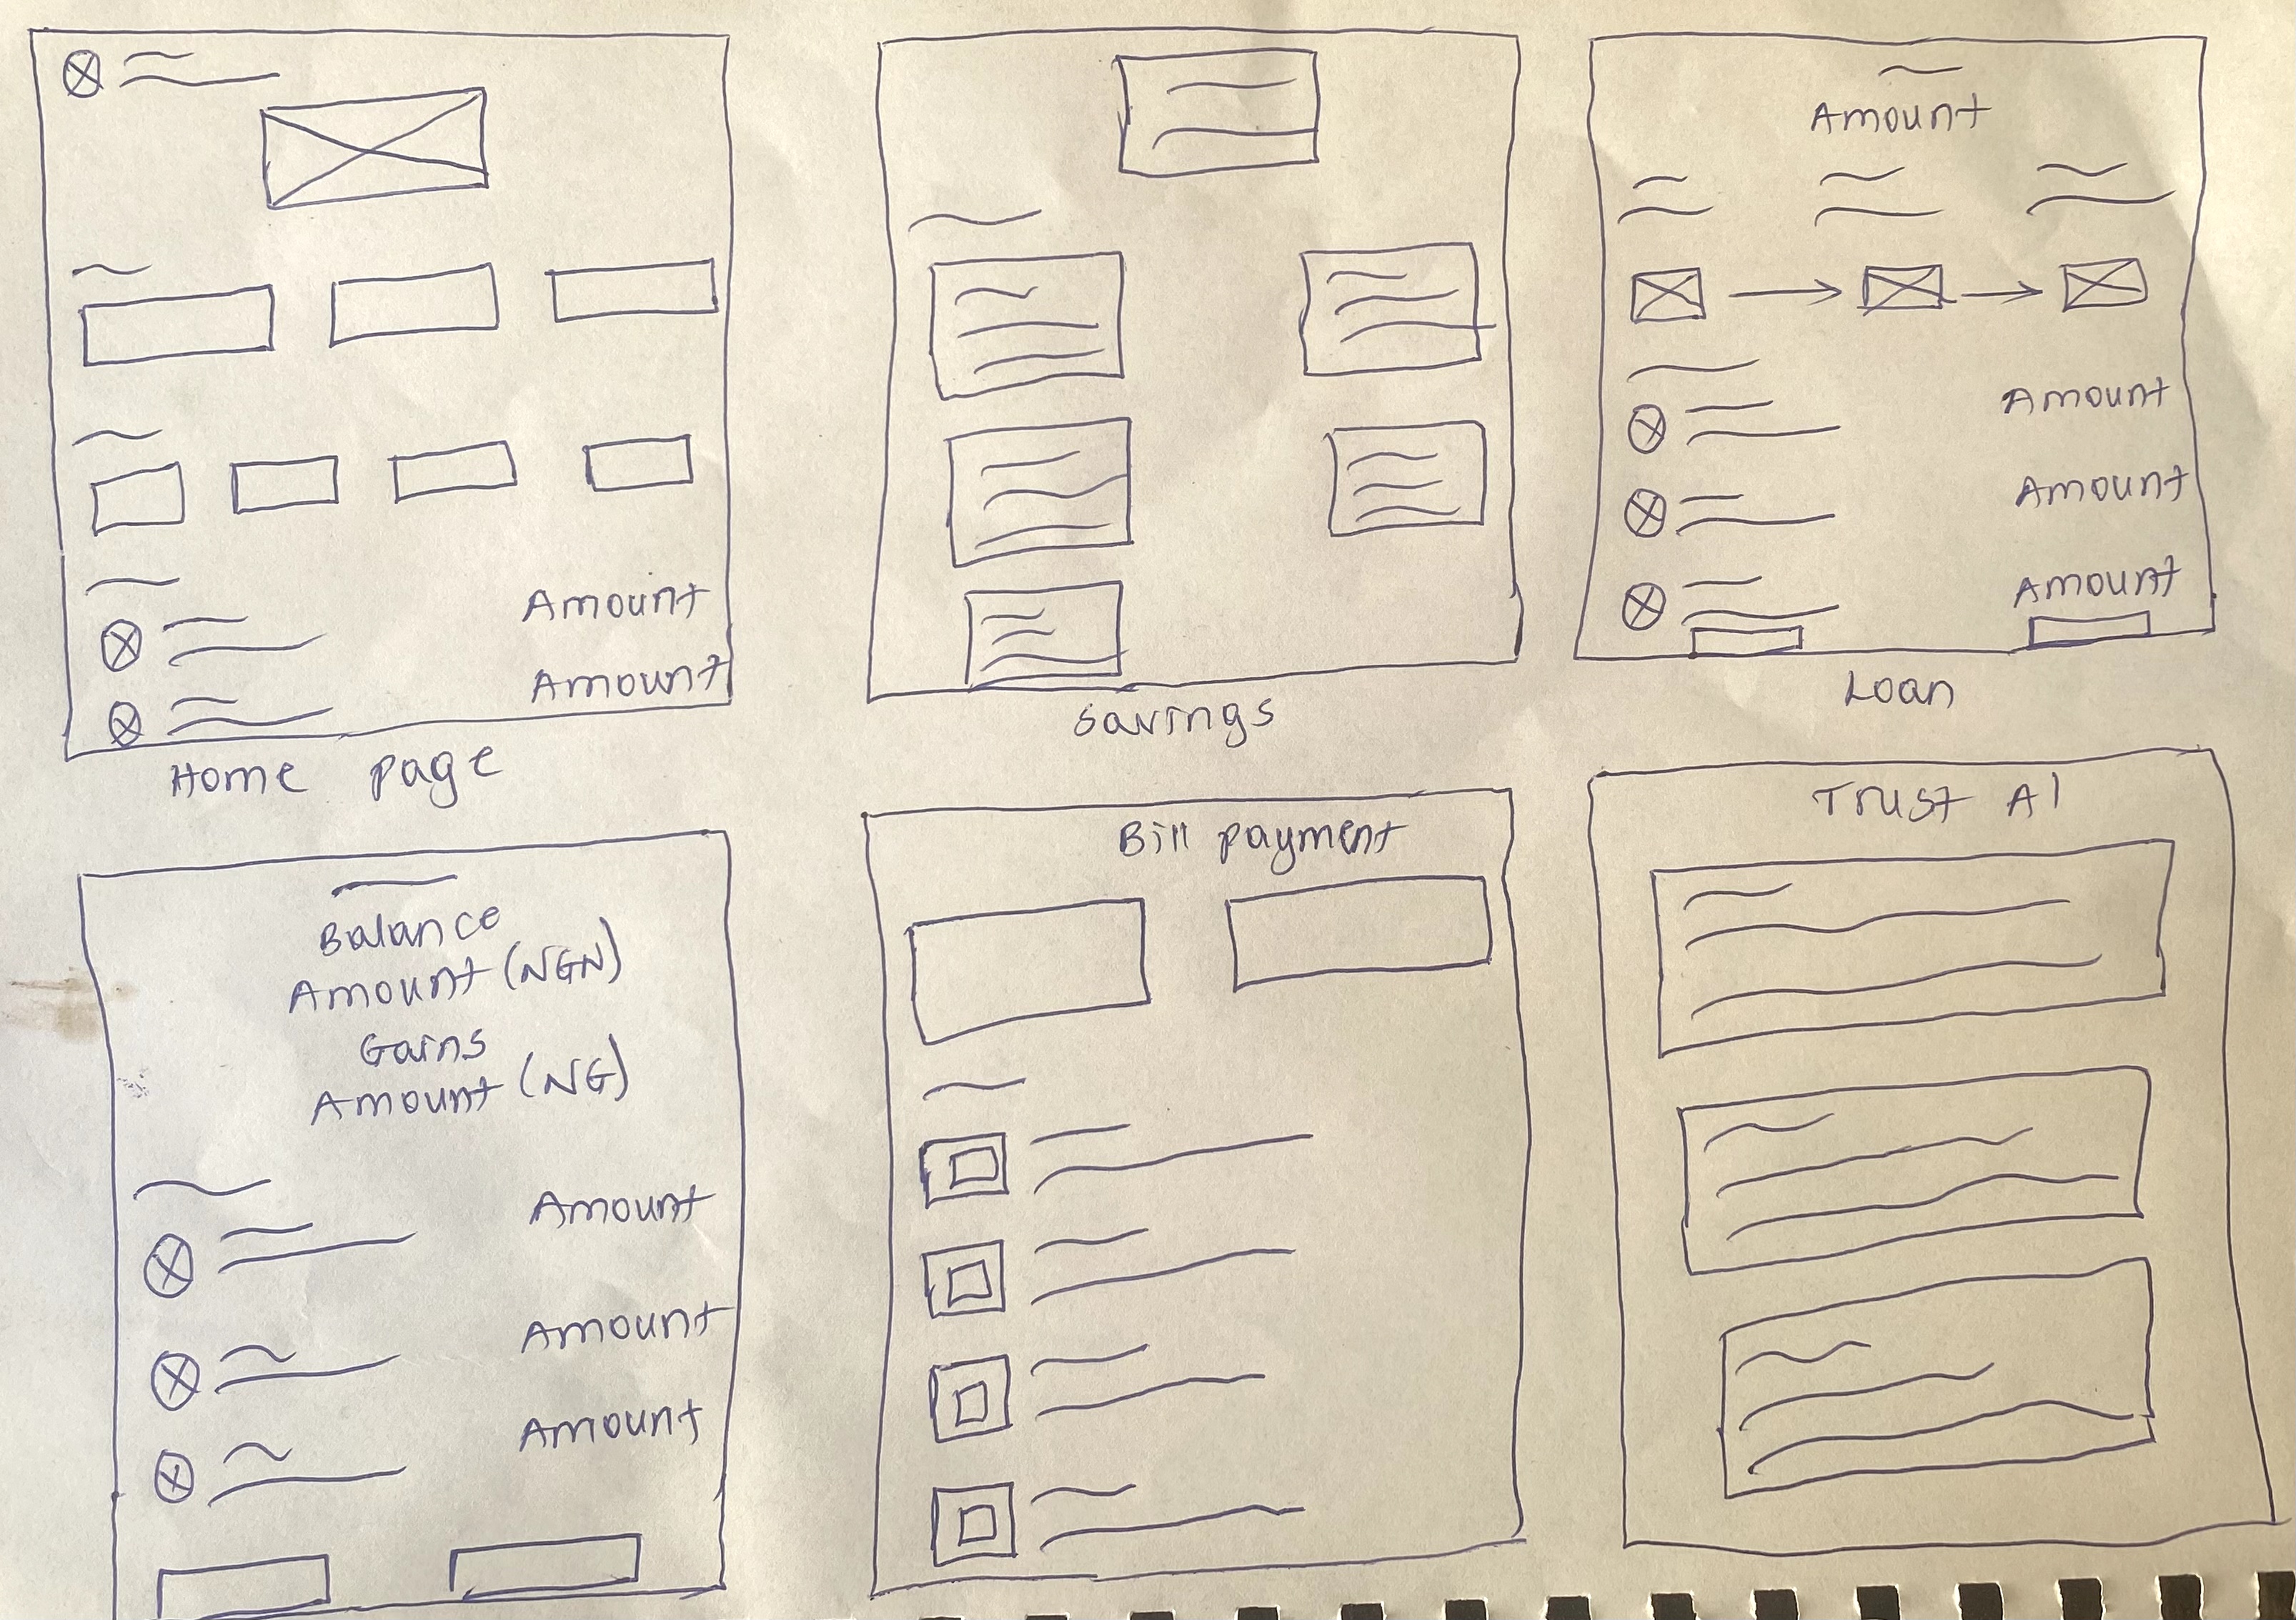 Amount
Amount
Home page
Savings
Amount
Amount
Amount
Amount
Loan
Balance
Amount (NGN)
Gains
Amount (NG)
Amount
Amount
Amount
Bill payment
Trust AI